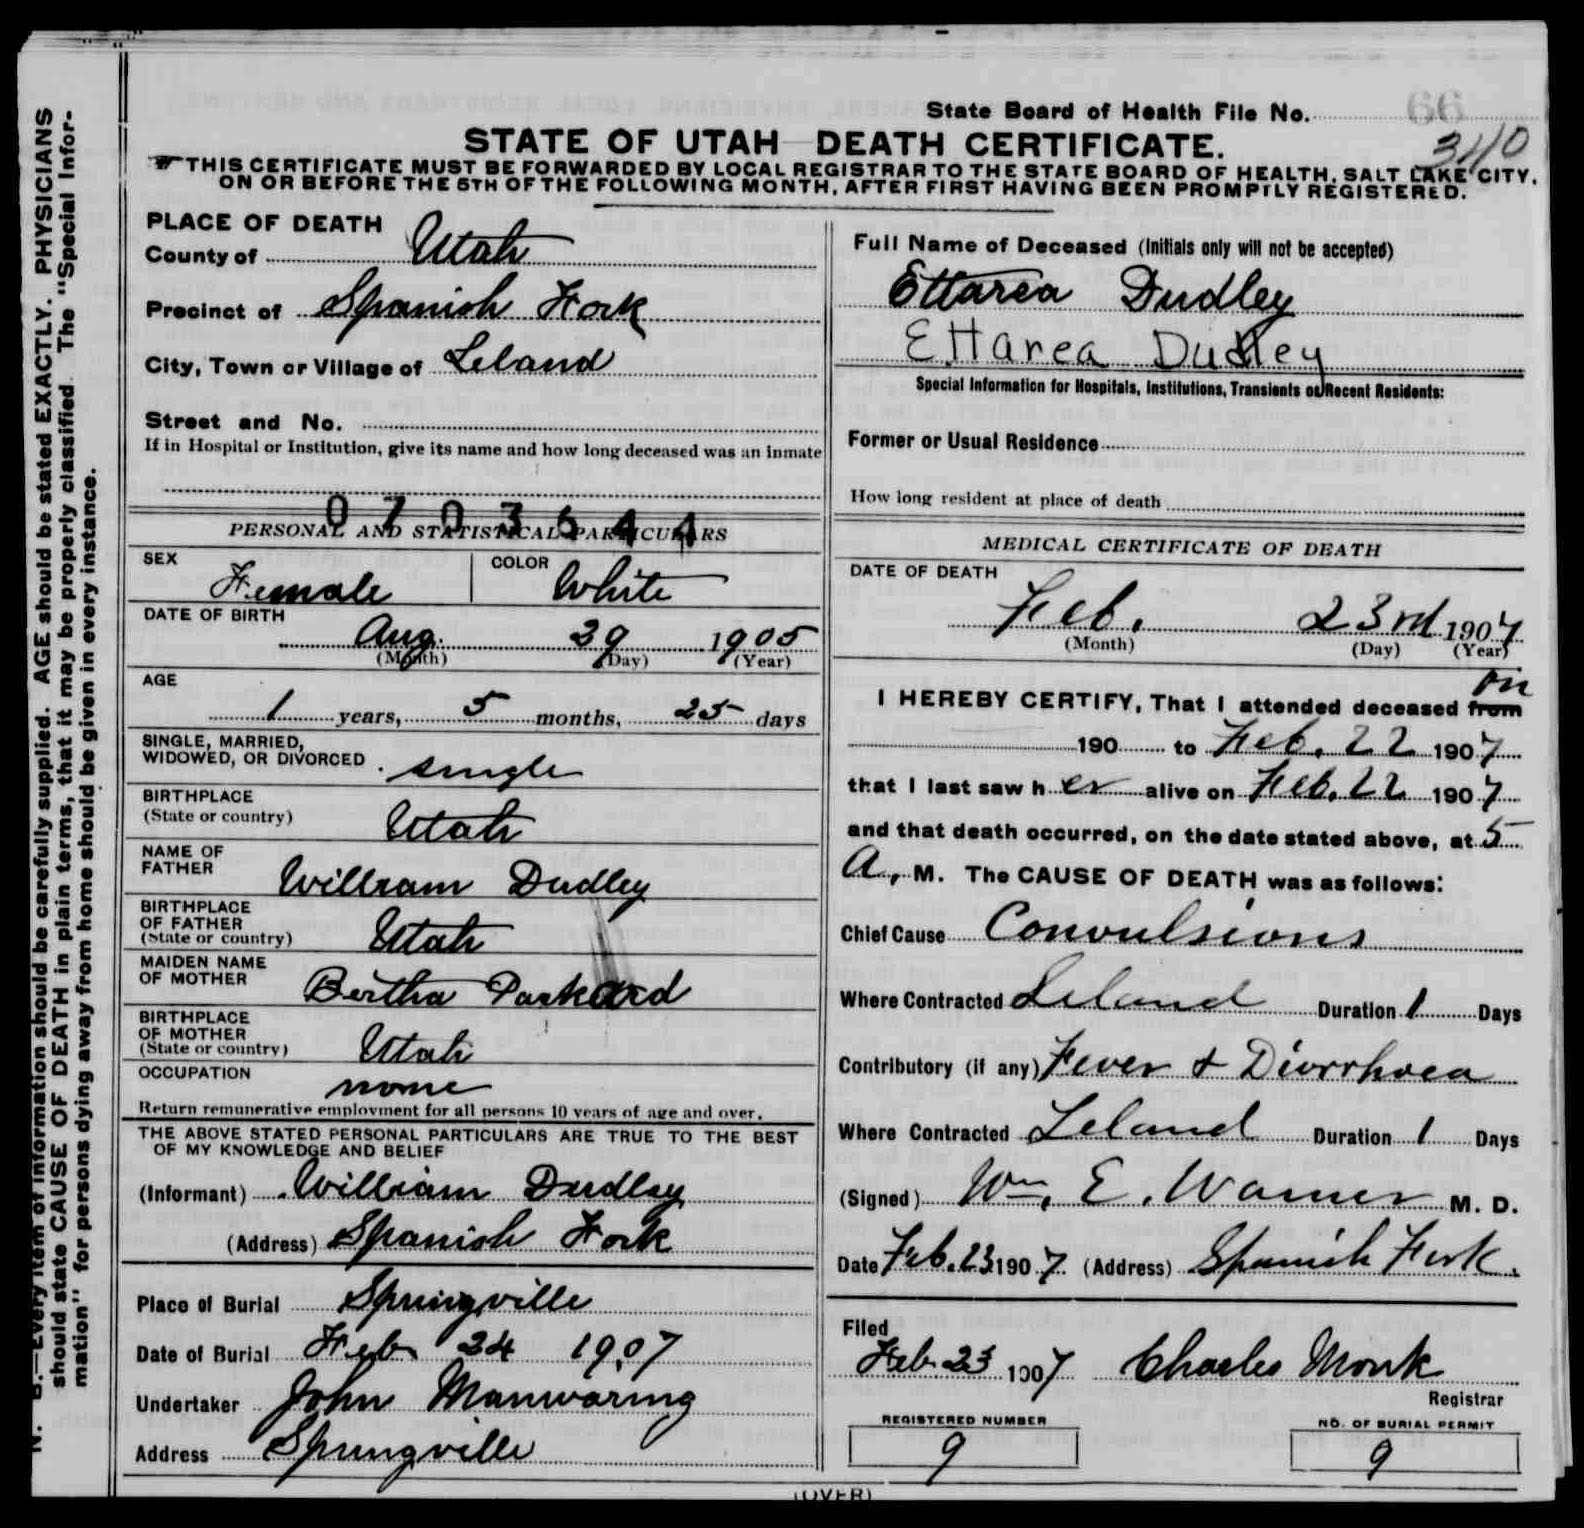 State Board of Health File No. 66
340
STATE OF UTAH DEATH CERTIFICATE.
THIS CERTIFICATE MUST BE FORWARDED BY LOCAL REGISTRAR TO THE STATE BOARD OF HEALTH, SALT LAKE CITY,
ON OR BEFORE THE 5TH OF THE FOLLOWING MONTH, AFTER FIRST HAVING BEEN PROMPTLY REGISTERED.
N. B.—Every item of information should be carefully supplied. AGE should be stated EXACTLY. PHYSICIANS
should state CAUSE OF DEATH in plain terms, that it may be properly classified. The "Special Infor-
mation" for persons dying away from home should be given in every instance.
PLACE OF DEATH
County of Utah
Precinct of Spanish Fork
City, Town or Village of Leland
Street and No.
If in Hospital or Institution, give its name and how long deceased was an inmate
0703644
PERSONAL AND STATISTICAL PARTICULARS
SEX Female COLOR White
DATE OF BIRTH
Aug. 29 1905
(Month) (Day) (Year)
AGE
1 years, 5 months, 25 days
SINGLE, MARRIED,
WIDOWED, OR DIVORCED single
BIRTHPLACE
(State or country) Utah
NAME OF
FATHER William Dudley
BIRTHPLACE
OF FATHER
(State or country) Utah
MAIDEN NAME
OF MOTHER Bertha Packard
BIRTHPLACE
OF MOTHER
(State or country) Utah
OCCUPATION none
Return remunerative employment for all persons 10 years of age and over.
THE ABOVE STATED PERSONAL PARTICULARS ARE TRUE TO THE BEST
OF MY KNOWLEDGE AND BELIEF
(Informant) William Dudley
(Address) Spanish Fork
Place of Burial Springville
Date of Burial Feb 24 1907
Undertaker John Manwaring
Address Springville
Full Name of Deceased (Initials only will not be accepted)
Ettarea Dudley
Ettarea Dudley
Special Information for Hospitals, Institutions, Transients or Recent Residents:
Former or Usual Residence
How long resident at place of death
MEDICAL CERTIFICATE OF DEATH
DATE OF DEATH
Feb. 23rd 1907
(Month) (Day) (Year)
on
I HEREBY CERTIFY, That I attended deceased from
190 to Feb. 22 1907
that I last saw her alive on Feb. 22 1907
and that death occurred, on the date stated above, at 5
A. M. The CAUSE OF DEATH was as follows:
Chief Cause Convulsions
Where Contracted Leland Duration 1 Days
Contributory (if any) Fever & Diorrhoea
Where Contracted Leland Duration 1 Days
(Signed) Wm. E. Warner M. D.
Date Feb. 23 1907 (Address) Spanish Fork.
Filed
Feb 23 1907 Charles Monk
Registrar
REGISTERED NUMBER
9
NO. OF BURIAL PERMIT
9
(OVER)